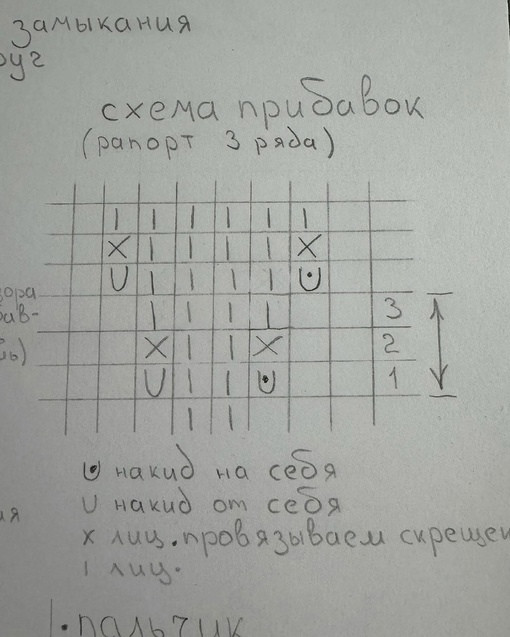 замыкания
схема прибавок
(рапорт 3 ряда)
| | | | | |
X | | | | X
U | | | | U
| | | | 3
X | | X 2
U | | U 1
| |
U накид на себя
U накид от себя
x лиц. провязываем скрещен
| лиц.
• пальчик